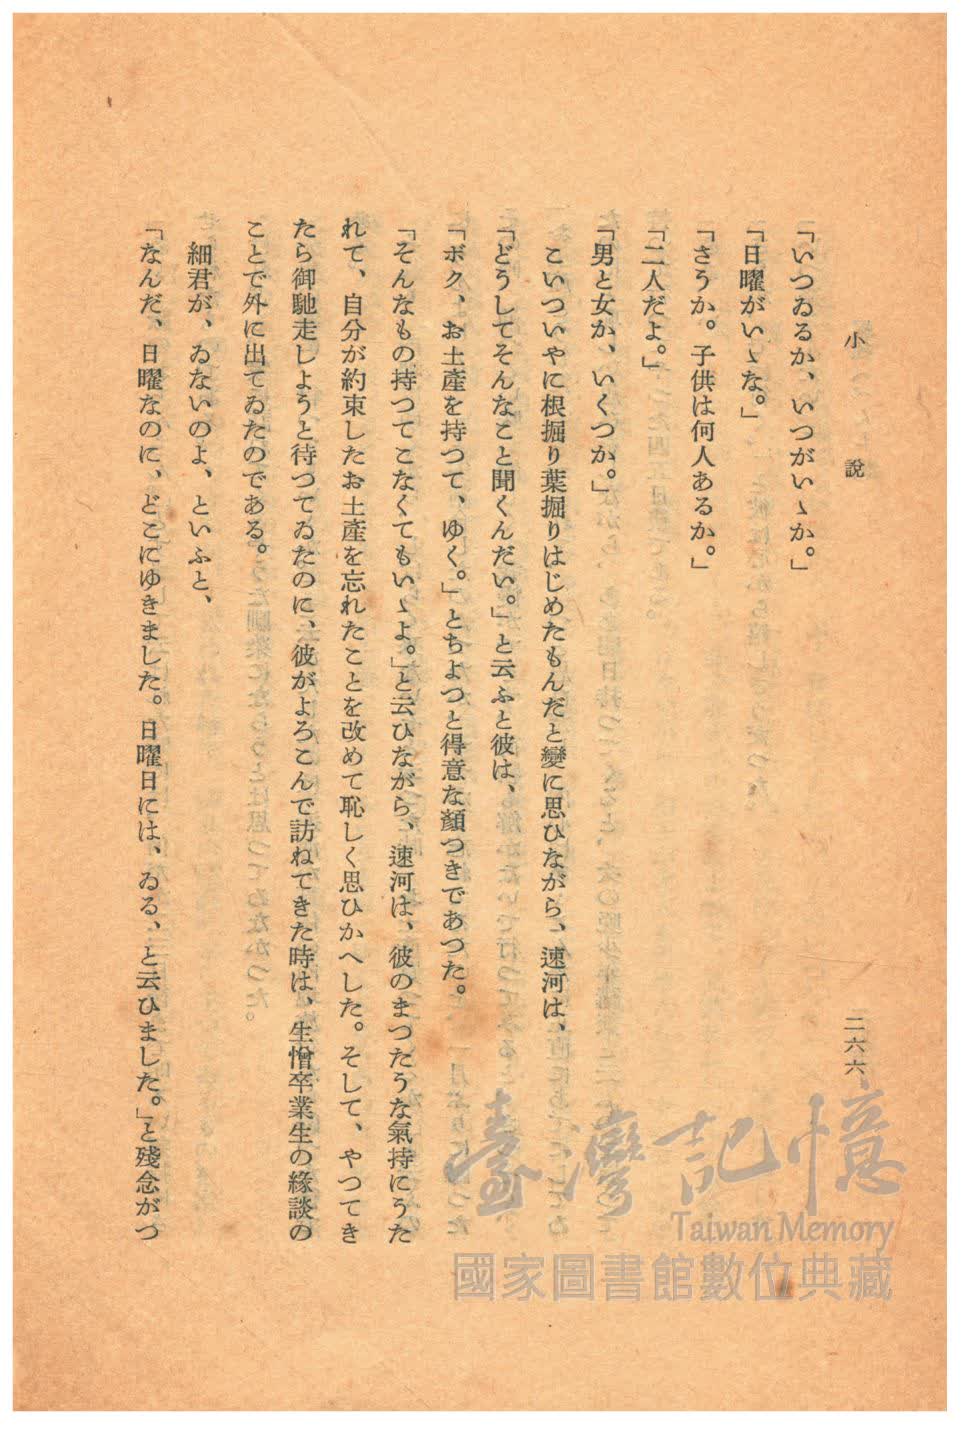 小說
二六六
「いつゐるか、いつがいゝか。」
「日曜がいゝな。」
「さうか。子供は何人あるか。」
「二人だよ。」
「男と女か、いくつか。」
こいついやに根掘り葉掘りはじめたもんだと變に思ひながら、速河は、
「どうしてそんなこと聞くんだい。」と云ふと彼は、
「ボク、お土產を持つて、ゆく。」とちよつと得意な顏つきであつた。
「そんなもの持つてこなくてもいゝよ。」と云ひながら、速河は、彼のまつたうな氣持にうた
れて、自分が約束したお土產を忘れたことを改めて恥しく思ひかへした。そして、やつてき
たら御馳走しようと待つてゐたのに、彼がよろこんで訪ねてきた時は、生憎卒業生の緣談の
ことで外に出てゐたのである。
細君が、ゐないのよ、といふと、
「なんだ、日曜なのに、どこにゆきました。日曜日には、ゐる、と云ひました。」と殘念がつ
臺灣記憶
Taiwan Memory
國家圖書館數位典藏